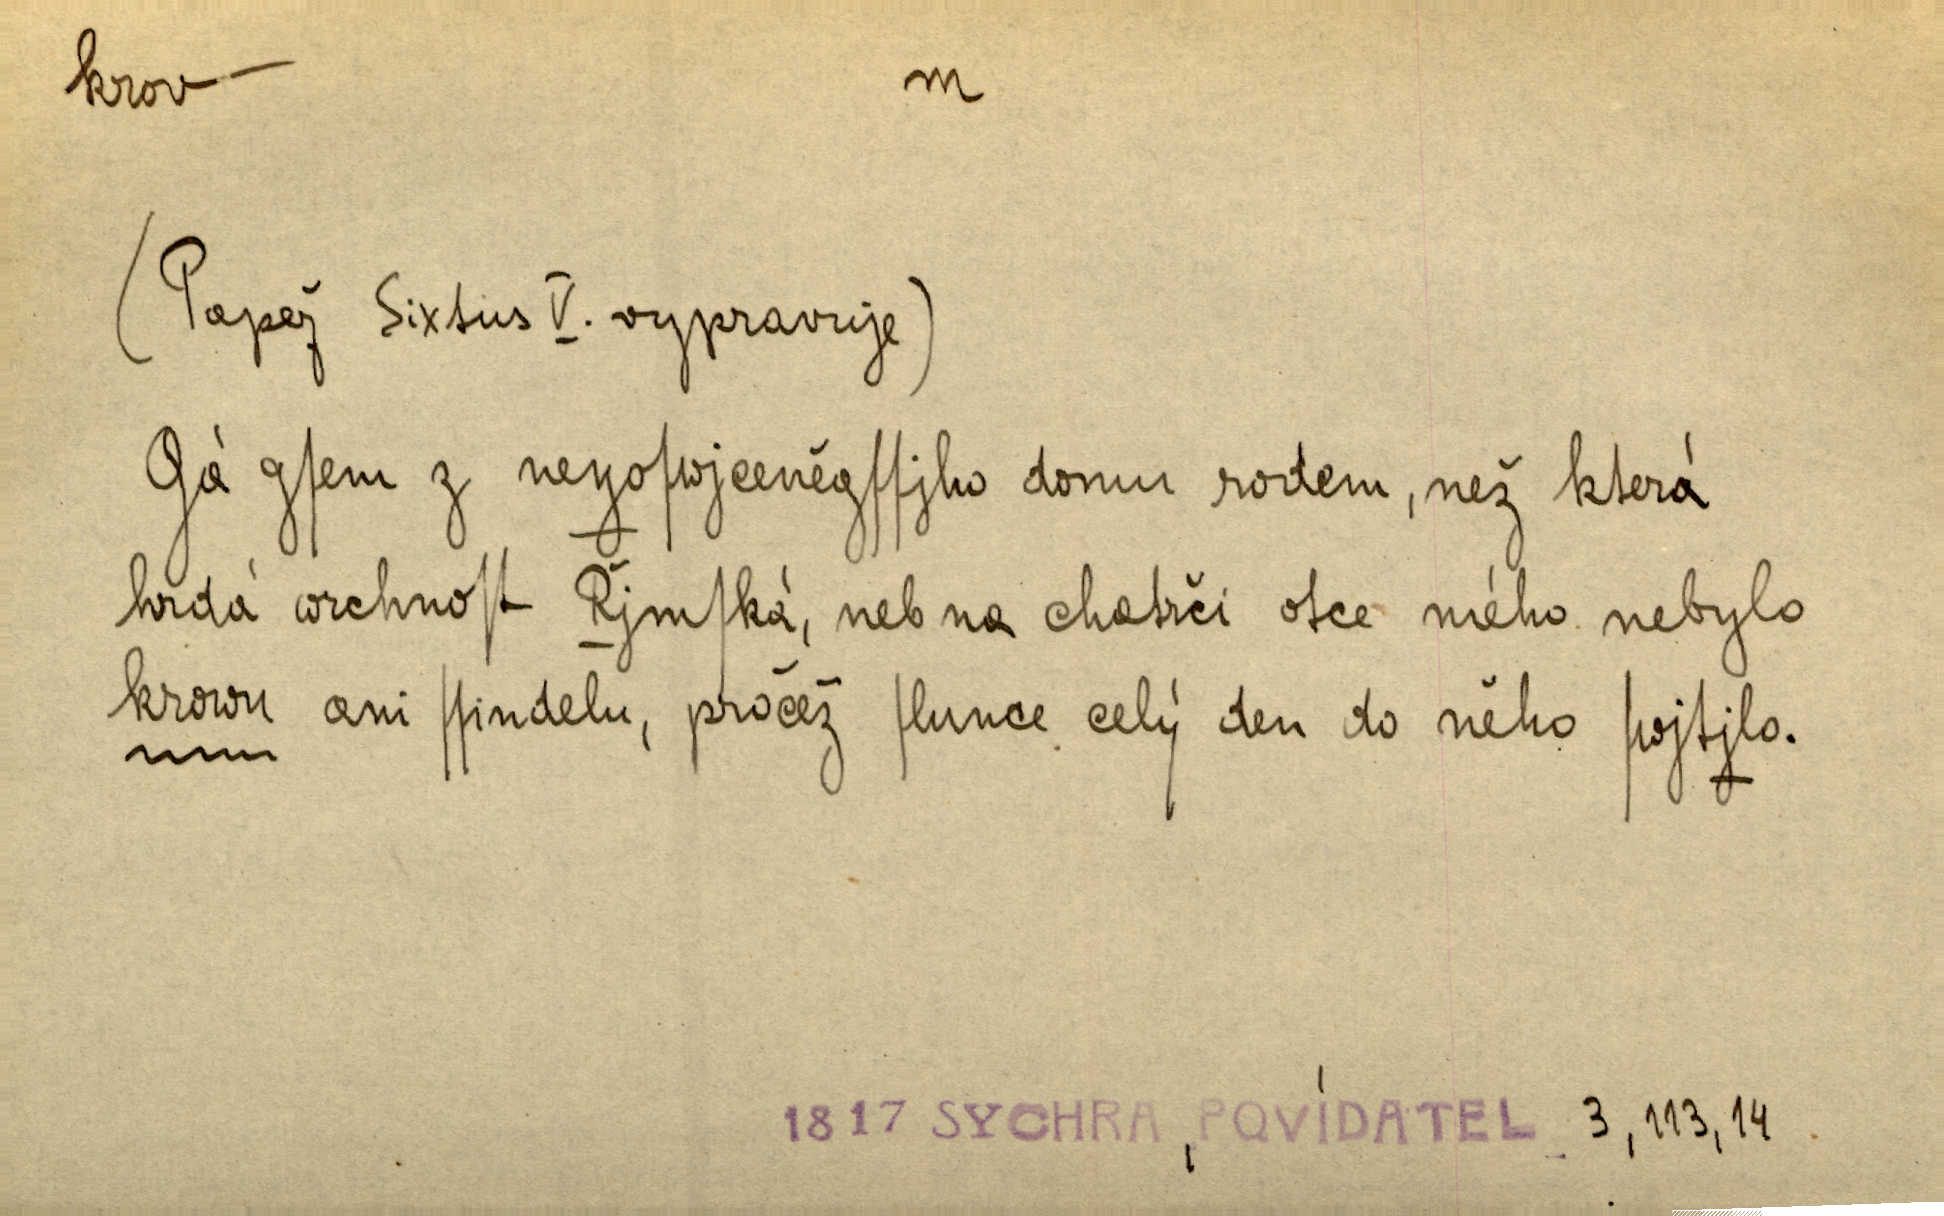 krov — m
(Papež Sixtus V. vypravuje)
Gá gſem z neyoſwjceněgſſjho domu rodem, než která
hrdá wrchnoſt Řjmſká, neb na chatrči otce mého nebylo
krowu ani ſſindelu, pročež ſlunce celý den do něho ſwjtjlo.
1817 SYCHRA, POVÍDATEL 3, 113, 14